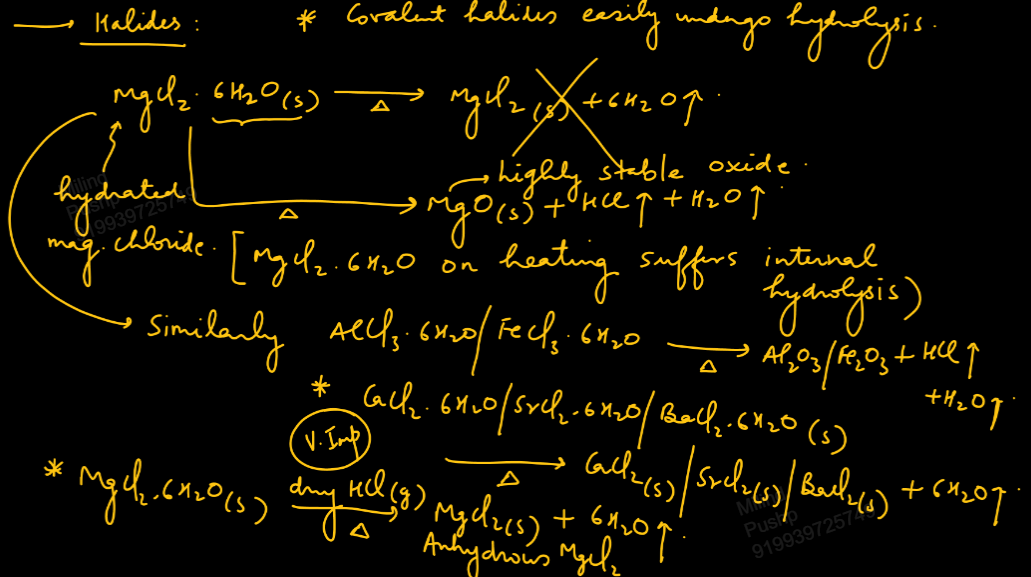 → Halides : * Covalent halides easily undergo hydrolysis.
MgCl₂·6H₂O(s) →Δ MgCl₂(s) + 6H₂O↑.
highly stable oxide.
hydrated →Δ MgO(s) + HCl↑ + H₂O↑.
mag. chloride. [MgCl₂·6H₂O on heating suffers internal
hydrolysis)
→ Similarly AlCl₃·6H₂O/FeCl₃·6H₂O →Δ Al₂O₃/Fe₂O₃ + HCl↑
+H₂O↑.
* CaCl₂·6H₂O/SrCl₂·6H₂O/BaCl₂·6H₂O(s)
V. Imp
→Δ CaCl₂(s)/SrCl₂(s)/BaCl₂(s) + 6H₂O↑.
* MgCl₂·6H₂O(s) dry HCl(g) →Δ MgCl₂(s) + 6H₂O↑.
Anhydrous MgCl₂
Pushp
919939725748